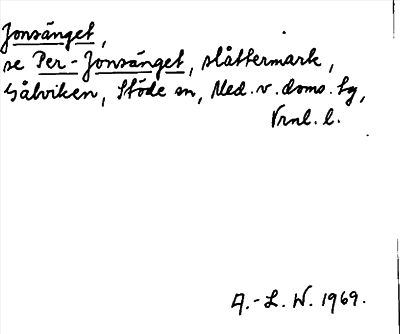 Jonsänget,
se Per-Jonsänget, slåttermark,
Sålviken, Stöde sn, Med. v. doms. tg,
Vrnl. l.
A.-L. W. 1969.